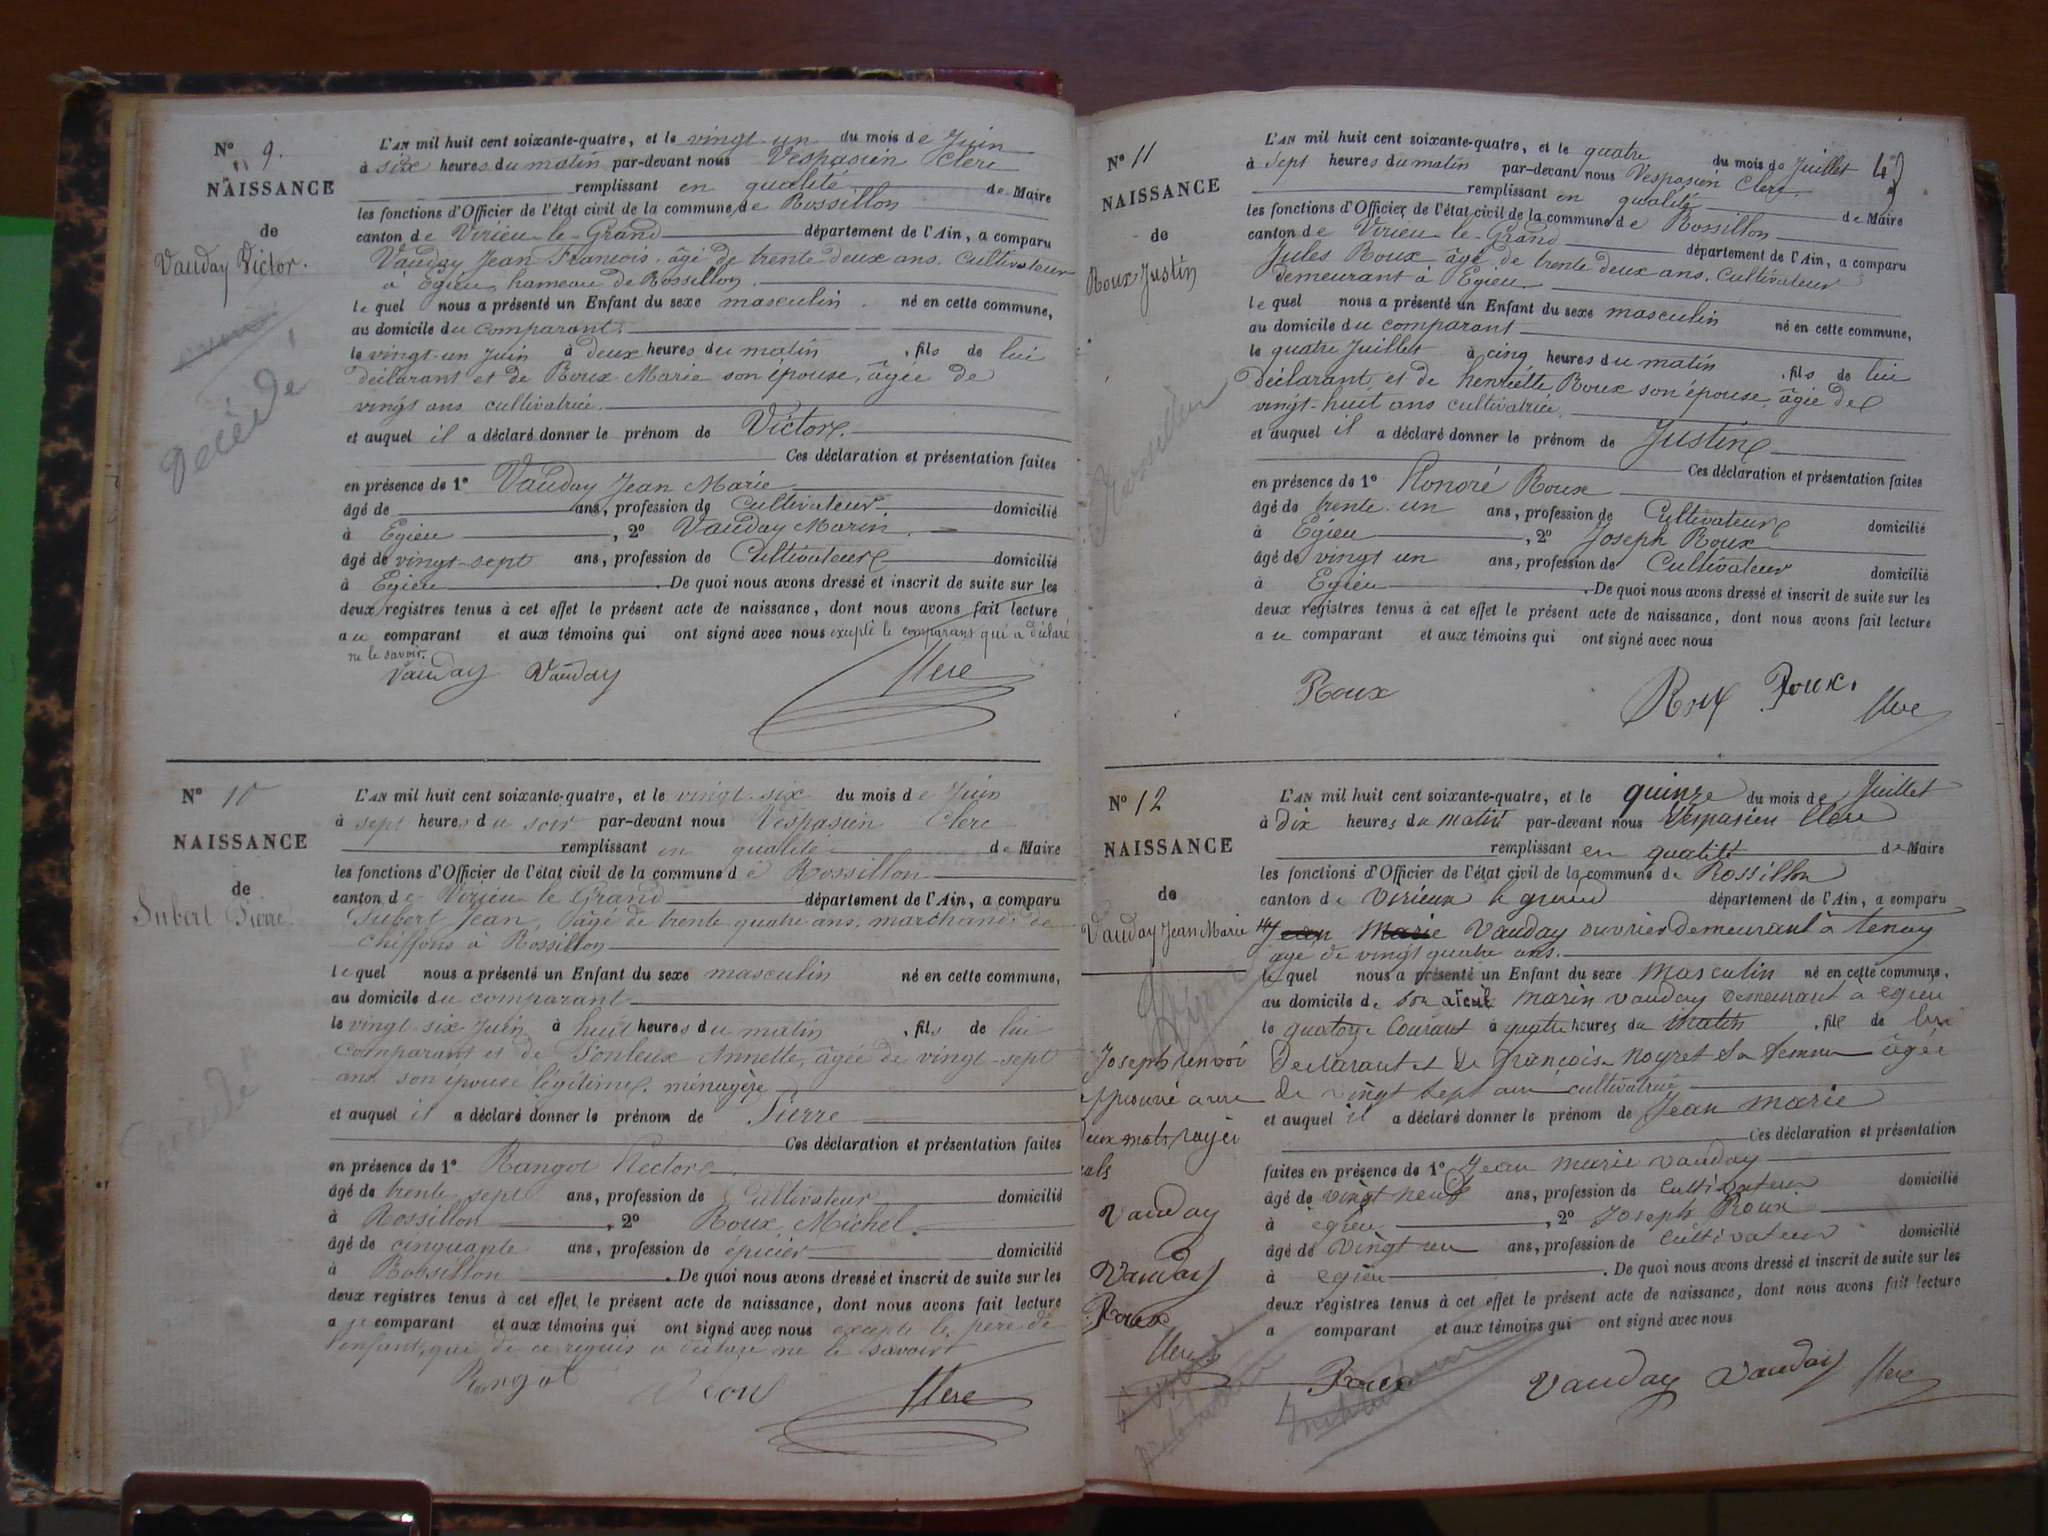 N° 9.
NAISSANCE
de
Vauday Victor.
Décédé
L'AN mil huit cent soixante-quatre, et le vingt-un du mois de Juin
à six heures du matin par-devant nous Vespasien Clerc
remplissant en qualité de Maire
les fonctions d'Officier de l'état civil de la commune de Rossillon
canton de Virieu-le-Grand département de l'Ain, a comparu
Vauday Jean François, âgé de trente deux ans, cultivateur
à Egieu, hameau de Rossillon
le quel nous a présenté un Enfant du sexe masculin né en cette commune,
au domicile du comparant
le vingt-un Juin à deux heures du matin, fils de lui
déclarant et de Roux Marie son épouse, âgée de
vingt ans cultivatrice.
et auquel il a déclaré donner le prénom de Victor.
Ces déclaration et présentation faites
en présence de 1° Vauday Jean Marie
âgé de ans, profession de Cultivateur domicilié
à Egieu, 2° Vauday Marin
âgé de vingt-sept ans, profession de Cultivateur domicilié
à Egieu. De quoi nous avons dressé et inscrit de suite sur les
deux registres tenus à cet effet le présent acte de naissance, dont nous avons fait lecture
au comparant et aux témoins qui ont signé avec nous excepté le comparant qui a déclaré
ne le savoir.
Vauday Vauday Clerc
N° 10
NAISSANCE
de
Jubert Pierre
L'AN mil huit cent soixante-quatre, et le vingt-six du mois de Juin
à sept heures du soir par-devant nous Vespasien Clerc
remplissant en qualité de Maire
les fonctions d'Officier de l'état civil de la commune de Rossillon
canton de Virieu le Grand département de l'Ain, a comparu
Jubert Jean, âgé de trente quatre ans, marchand de
chiffons à Rossillon
le quel nous a présenté un Enfant du sexe masculin né en cette commune,
au domicile du comparant
le vingt-six Juin à huit heures du matin, fils de lui
comparant et de Annette, âgée de vingt-sept
ans son épouse légitime, ménagère
et auquel il a déclaré donner le prénom de Pierre
Ces déclaration et présentation faites
en présence de 1° Rangot Hector
âgé de trente sept ans, profession de Cultivateur domicilié
à Rossillon, 2° Roux Michel
âgé de cinquante ans, profession de épicier domicilié
à Rossillon. De quoi nous avons dressé et inscrit de suite sur les
deux registres tenus à cet effet le présent acte de naissance, dont nous avons fait lecture
au comparant et aux témoins qui ont signé avec nous excepté le père de
l'enfant, qui de ce requis a déclaré ne le savoir
Rangot Roux Clerc
N° 11
NAISSANCE
de
Roux Justin
L'AN mil huit cent soixante-quatre, et le quatre du mois de Juillet
à sept heures du matin par-devant nous Vespasien Clerc
remplissant en qualité de Maire
les fonctions d'Officier de l'état civil de la commune de Rossillon
canton de Virieu-le-Grand département de l'Ain, a comparu
Jules Roux âgé de trente deux ans, cultivateur
demeurant à Egieu
le quel nous a présenté un Enfant du sexe masculin né en cette commune,
au domicile du comparant
le quatre Juillet à cinq heures du matin, fils de lui
déclarant, et de henriette Roux son épouse, âgée de
vingt-huit ans cultivatrice,
et auquel il a déclaré donner le prénom de Justin
Ces déclaration et présentation faites
en présence de 1° Honoré Roux
âgé de trente-un ans, profession de Cultivateur domicilié
à Egieu, 2° Joseph Roux
âgé de vingt un ans, profession de Cultivateur domicilié
à Egieu. De quoi nous avons dressé et inscrit de suite sur les
deux registres tenus à cet effet le présent acte de naissance, dont nous avons fait lecture
au comparant et aux témoins qui ont signé avec nous
Roux Roux Roux. Clerc
N° 12
NAISSANCE
de
Vauday Jean Marie
Joseph renvoi
approuvé avec
deux mots rayés
nuls
Vauday
Vauday
Roux
Clerc
L'AN mil huit cent soixante-quatre, et le quinze du mois de Juillet
à dix heures du matin par-devant nous Vespasien Clerc
remplissant en qualité de Maire
les fonctions d'Officier de l'état civil de la commune de Rossillon
canton de Virieux le grand département de l'Ain, a comparu
Jean Marie Vauday ouvrier demeurant à tenay
âgé de vingt quatre ans.
le quel nous a présenté un Enfant du sexe masculin né en cette commune,
au domicile de son aïeul marin vauday demeurant à egieu
le quatorze Courant à quatre heures du matin, fils de lui
declarant et de françoise Noyret sa femme âgée
de vingt sept ans cultivatrice
et auquel il a déclaré donner le prénom de Jean marie
Ces déclaration et présentation
faites en présence de 1° Jean marie vauday
âgé de vingt neuf ans, profession de Cultivateur domicilié
à egieu, 2° Joseph Roux
âgé de vingt un ans, profession de cultivateur domicilié
à egieu. De quoi nous avons dressé et inscrit de suite sur les
deux registres tenus à cet effet le présent acte de naissance, dont nous avons fait lecture
a comparant et aux témoins qui ont signé avec nous
Roux Vauday Vauday Clerc